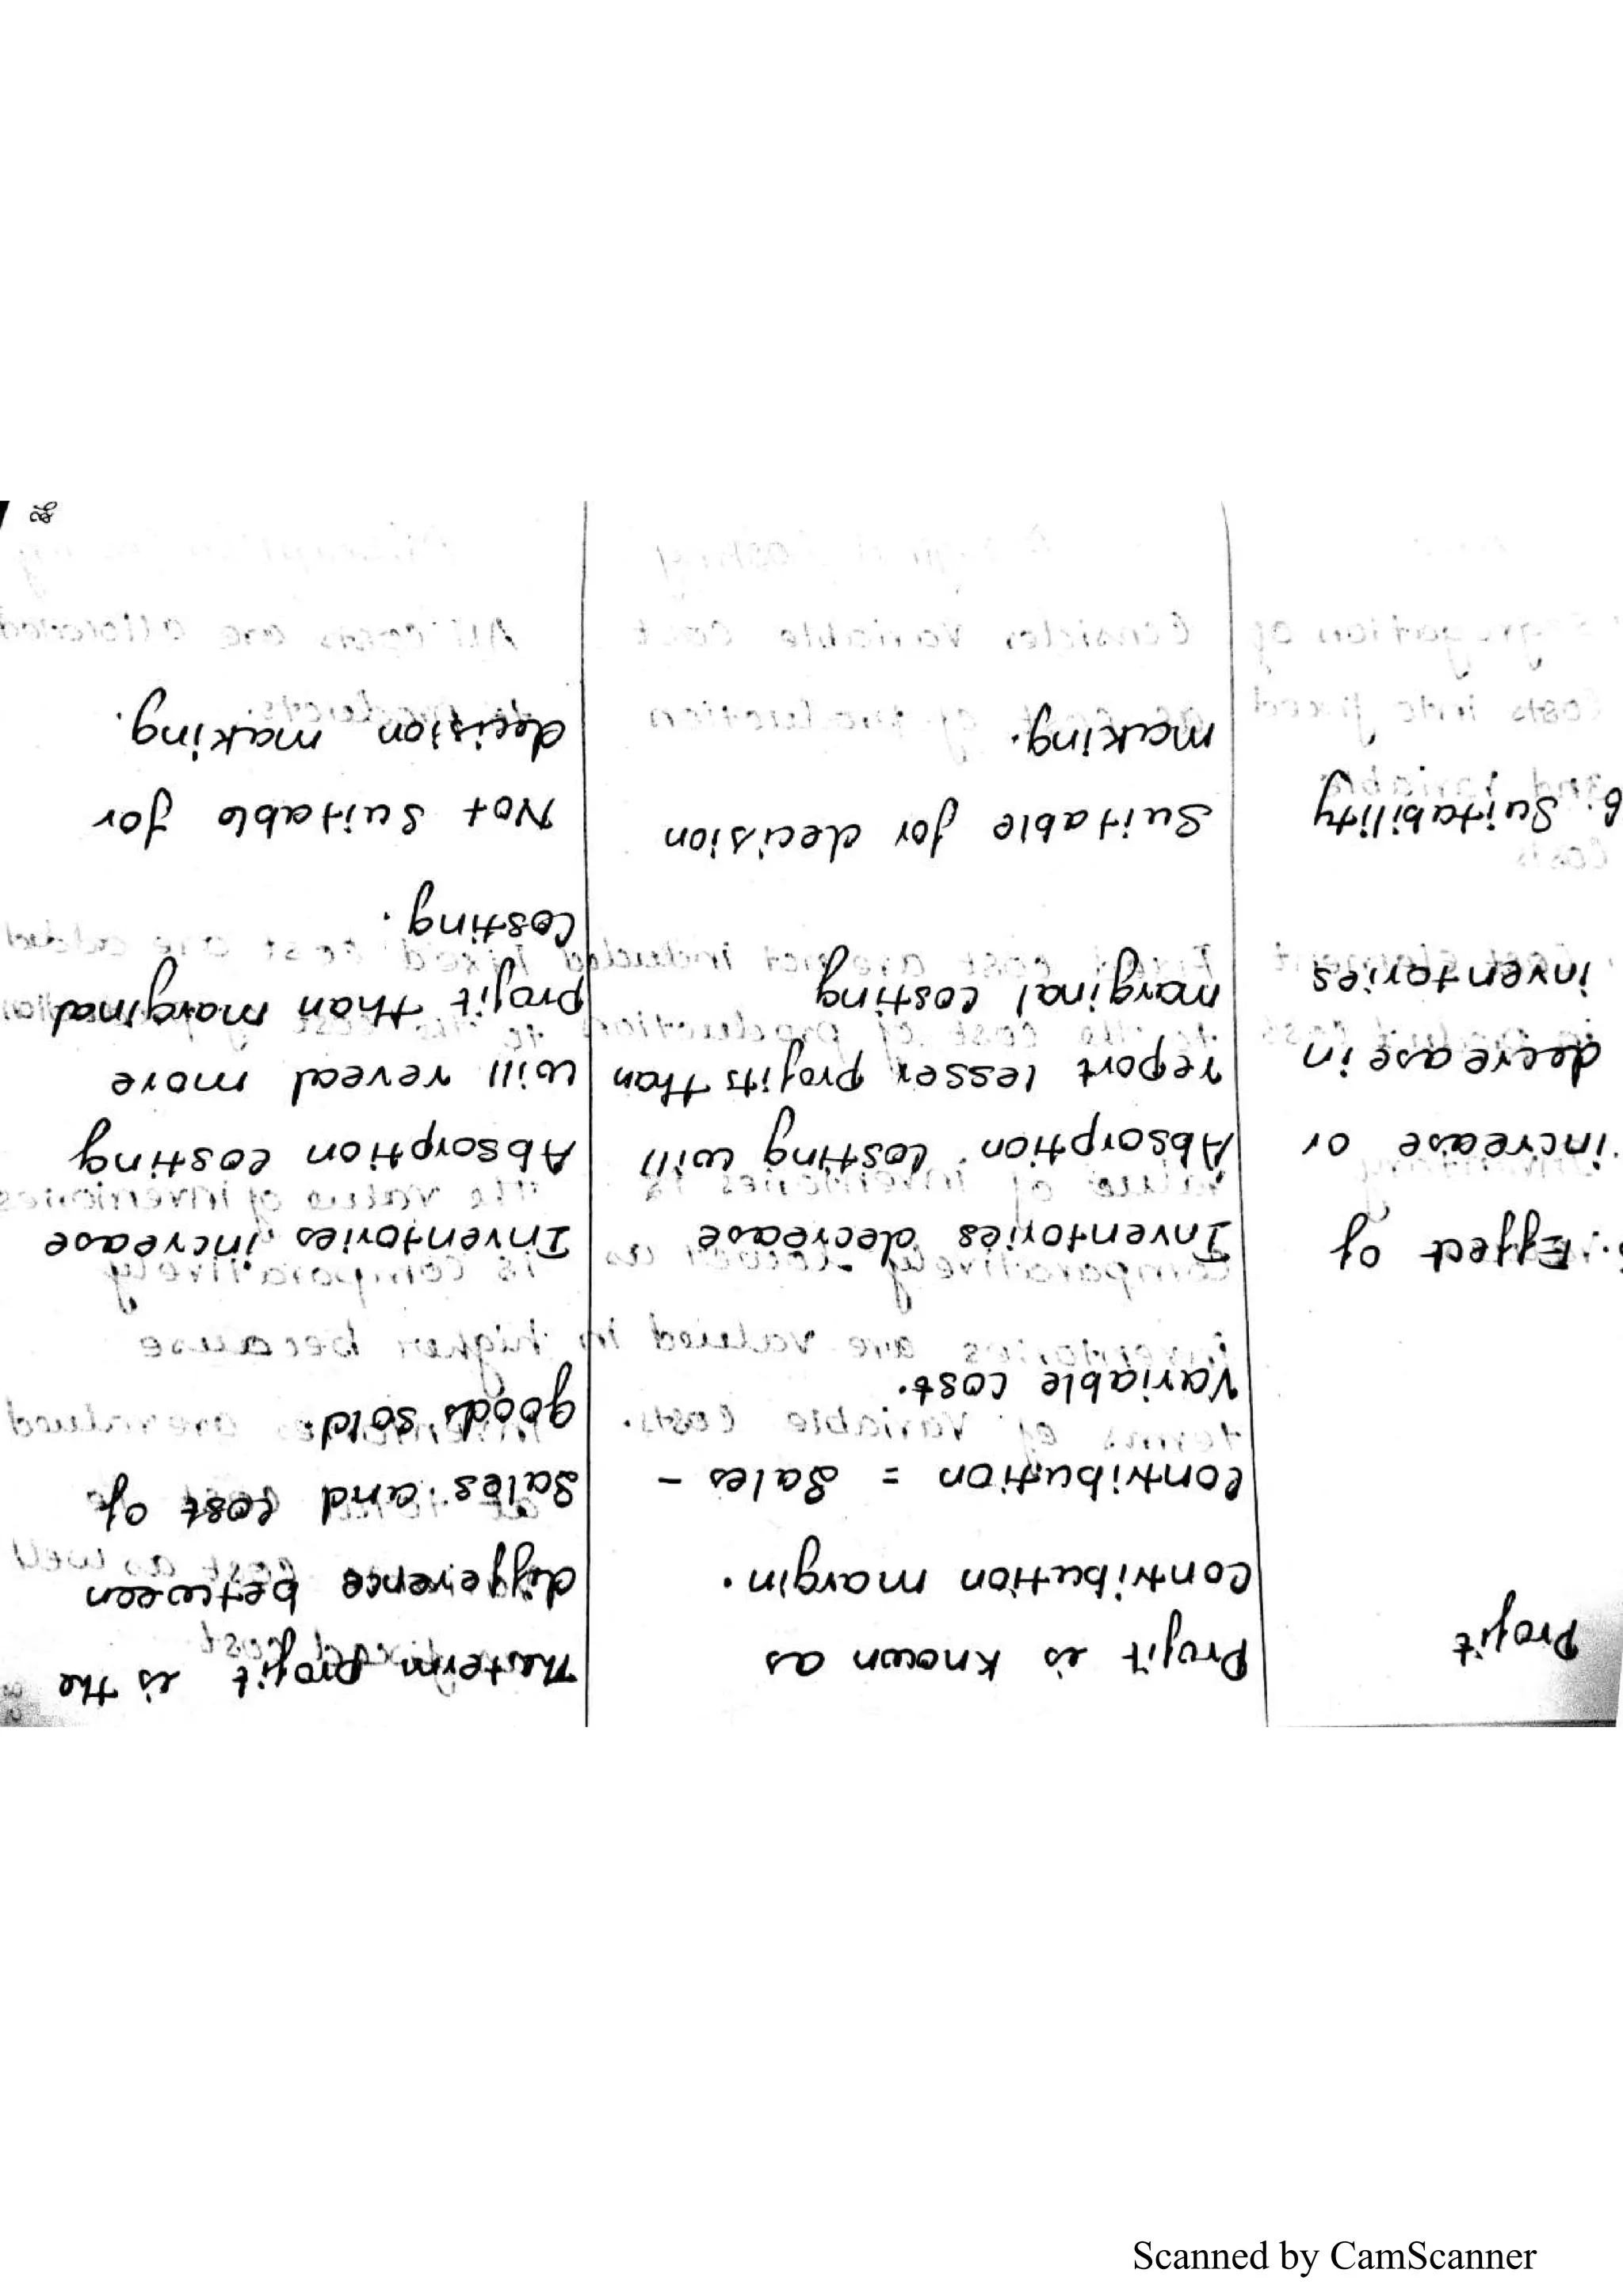 Profit
Profit is known as
contribution margin.
Contribution = Sales -
Variable cost.
The term profit is the
difference between
Sales and cost of
goods sold.
Effect of
increase or
decrease in
inventories
Inventories decrease
Absorption costing will
report lesser profits than
marginal costing
Inventories increase
Absorption costing
will reveal more
profit than marginal
costing.
6. Suitability
Suitable for decision
making.
Not suitable for
decision making.
Scanned by CamScanner